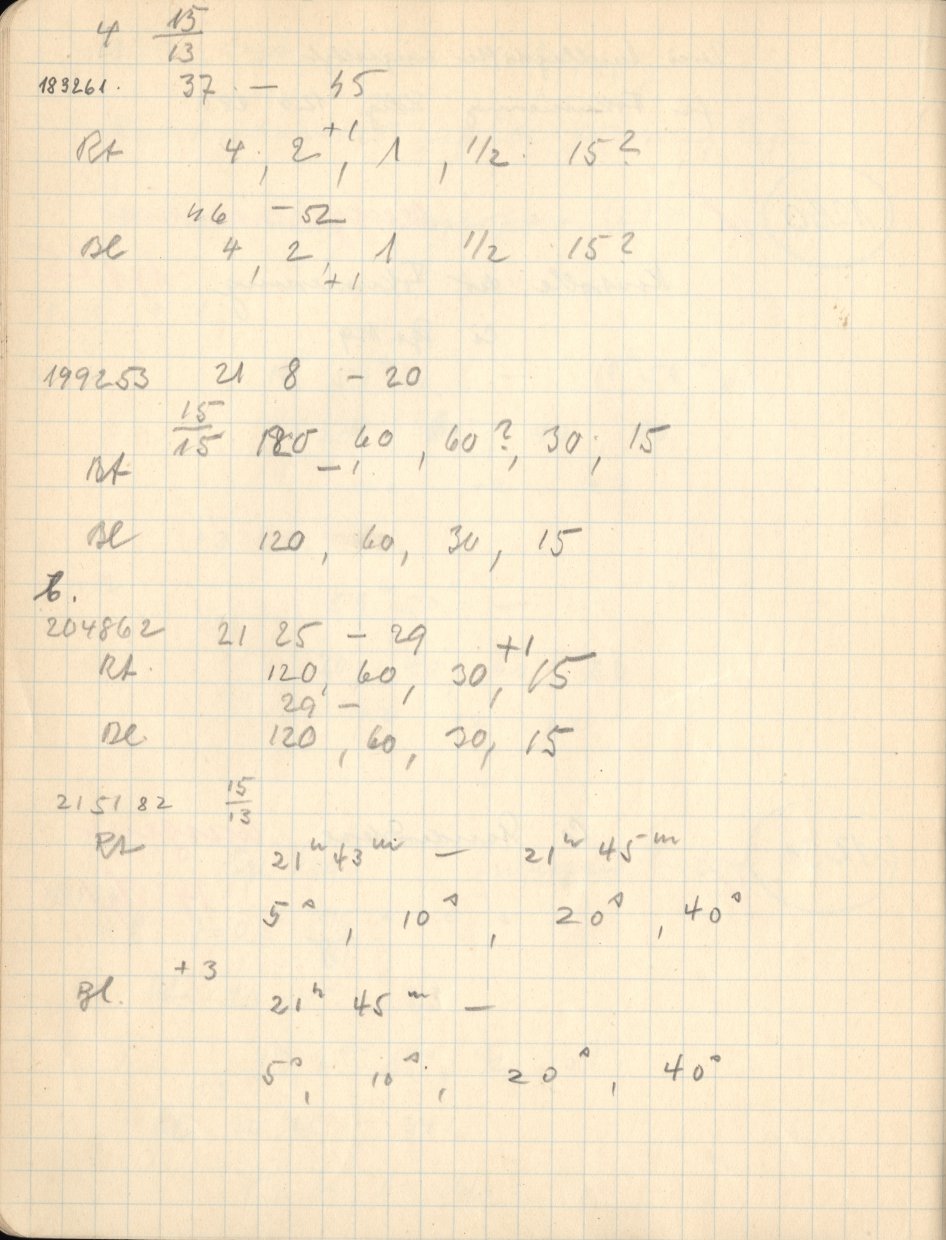 4 15/13
183261. 37 — 45
Rt 4, 2, +1 1, 1/2 15?
46 – 52
Bl 4, 2, 1 1/2 15?
+1
199253 21 8 – 20
15/15 120, 60, 60?, 30, 15
Rt –
Bl 120, 60, 30, 15
b.
204862 21 25 – 29
Rt. 120, 60, 30, +1 15
29 –
Bl. 120, 60, 30, 15
215182 15/13
Rt 21h 43m — 21h 45m
5s, 10s, 20s, 40s
+3
Bl. 21h 45m —
5s, 10s, 20s, 40s